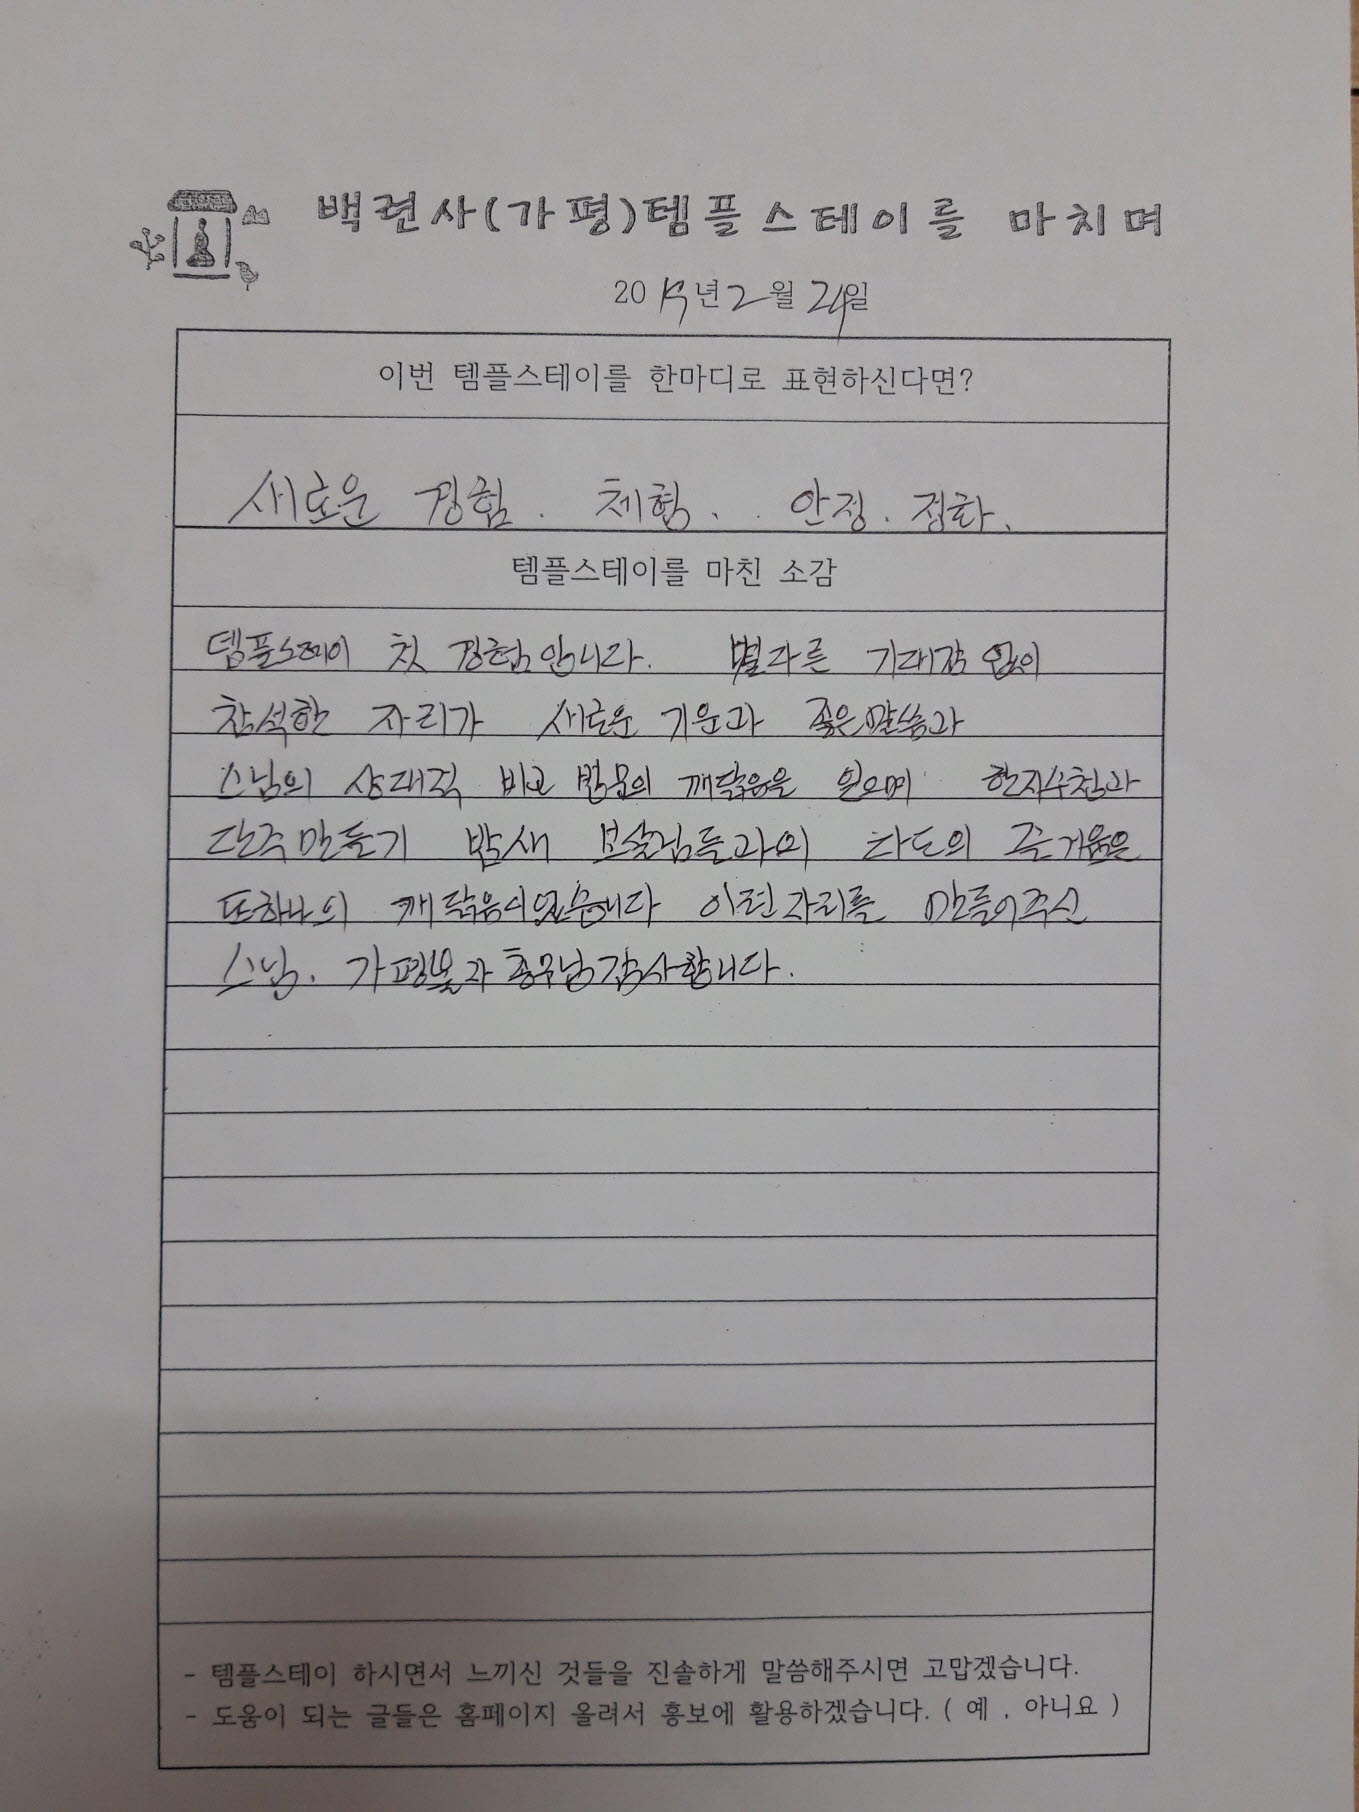 백련사(가평)템플스테이를 마치며
2019년 2월 24일
이번 템플스테이를 한마디로 표현하신다면?
새로운 경험. 체험. . 안정. 정화.
템플스테이를 마친 소감
템플스테이 첫 경험입니다. 별다른 기대감 없이
참석한 자리가 새로운 기운과 좋은말씀과
스님의 상대적 비교 법문의 깨닭음을 얻으며 한지수첩과
단주만들기 밤새 보살님들과의 다도의 즐거움은
또하나의 깨닭음이었습니다 이런자리를 만들어주신
스님. 가평 총무님감사합니다.
- 템플스테이 하시면서 느끼신 것들을 진솔하게 말씀해주시면 고맙겠습니다.
- 도움이 되는 글들은 홈페이지 올려서 홍보에 활용하겠습니다. ( 예 , 아니요 )